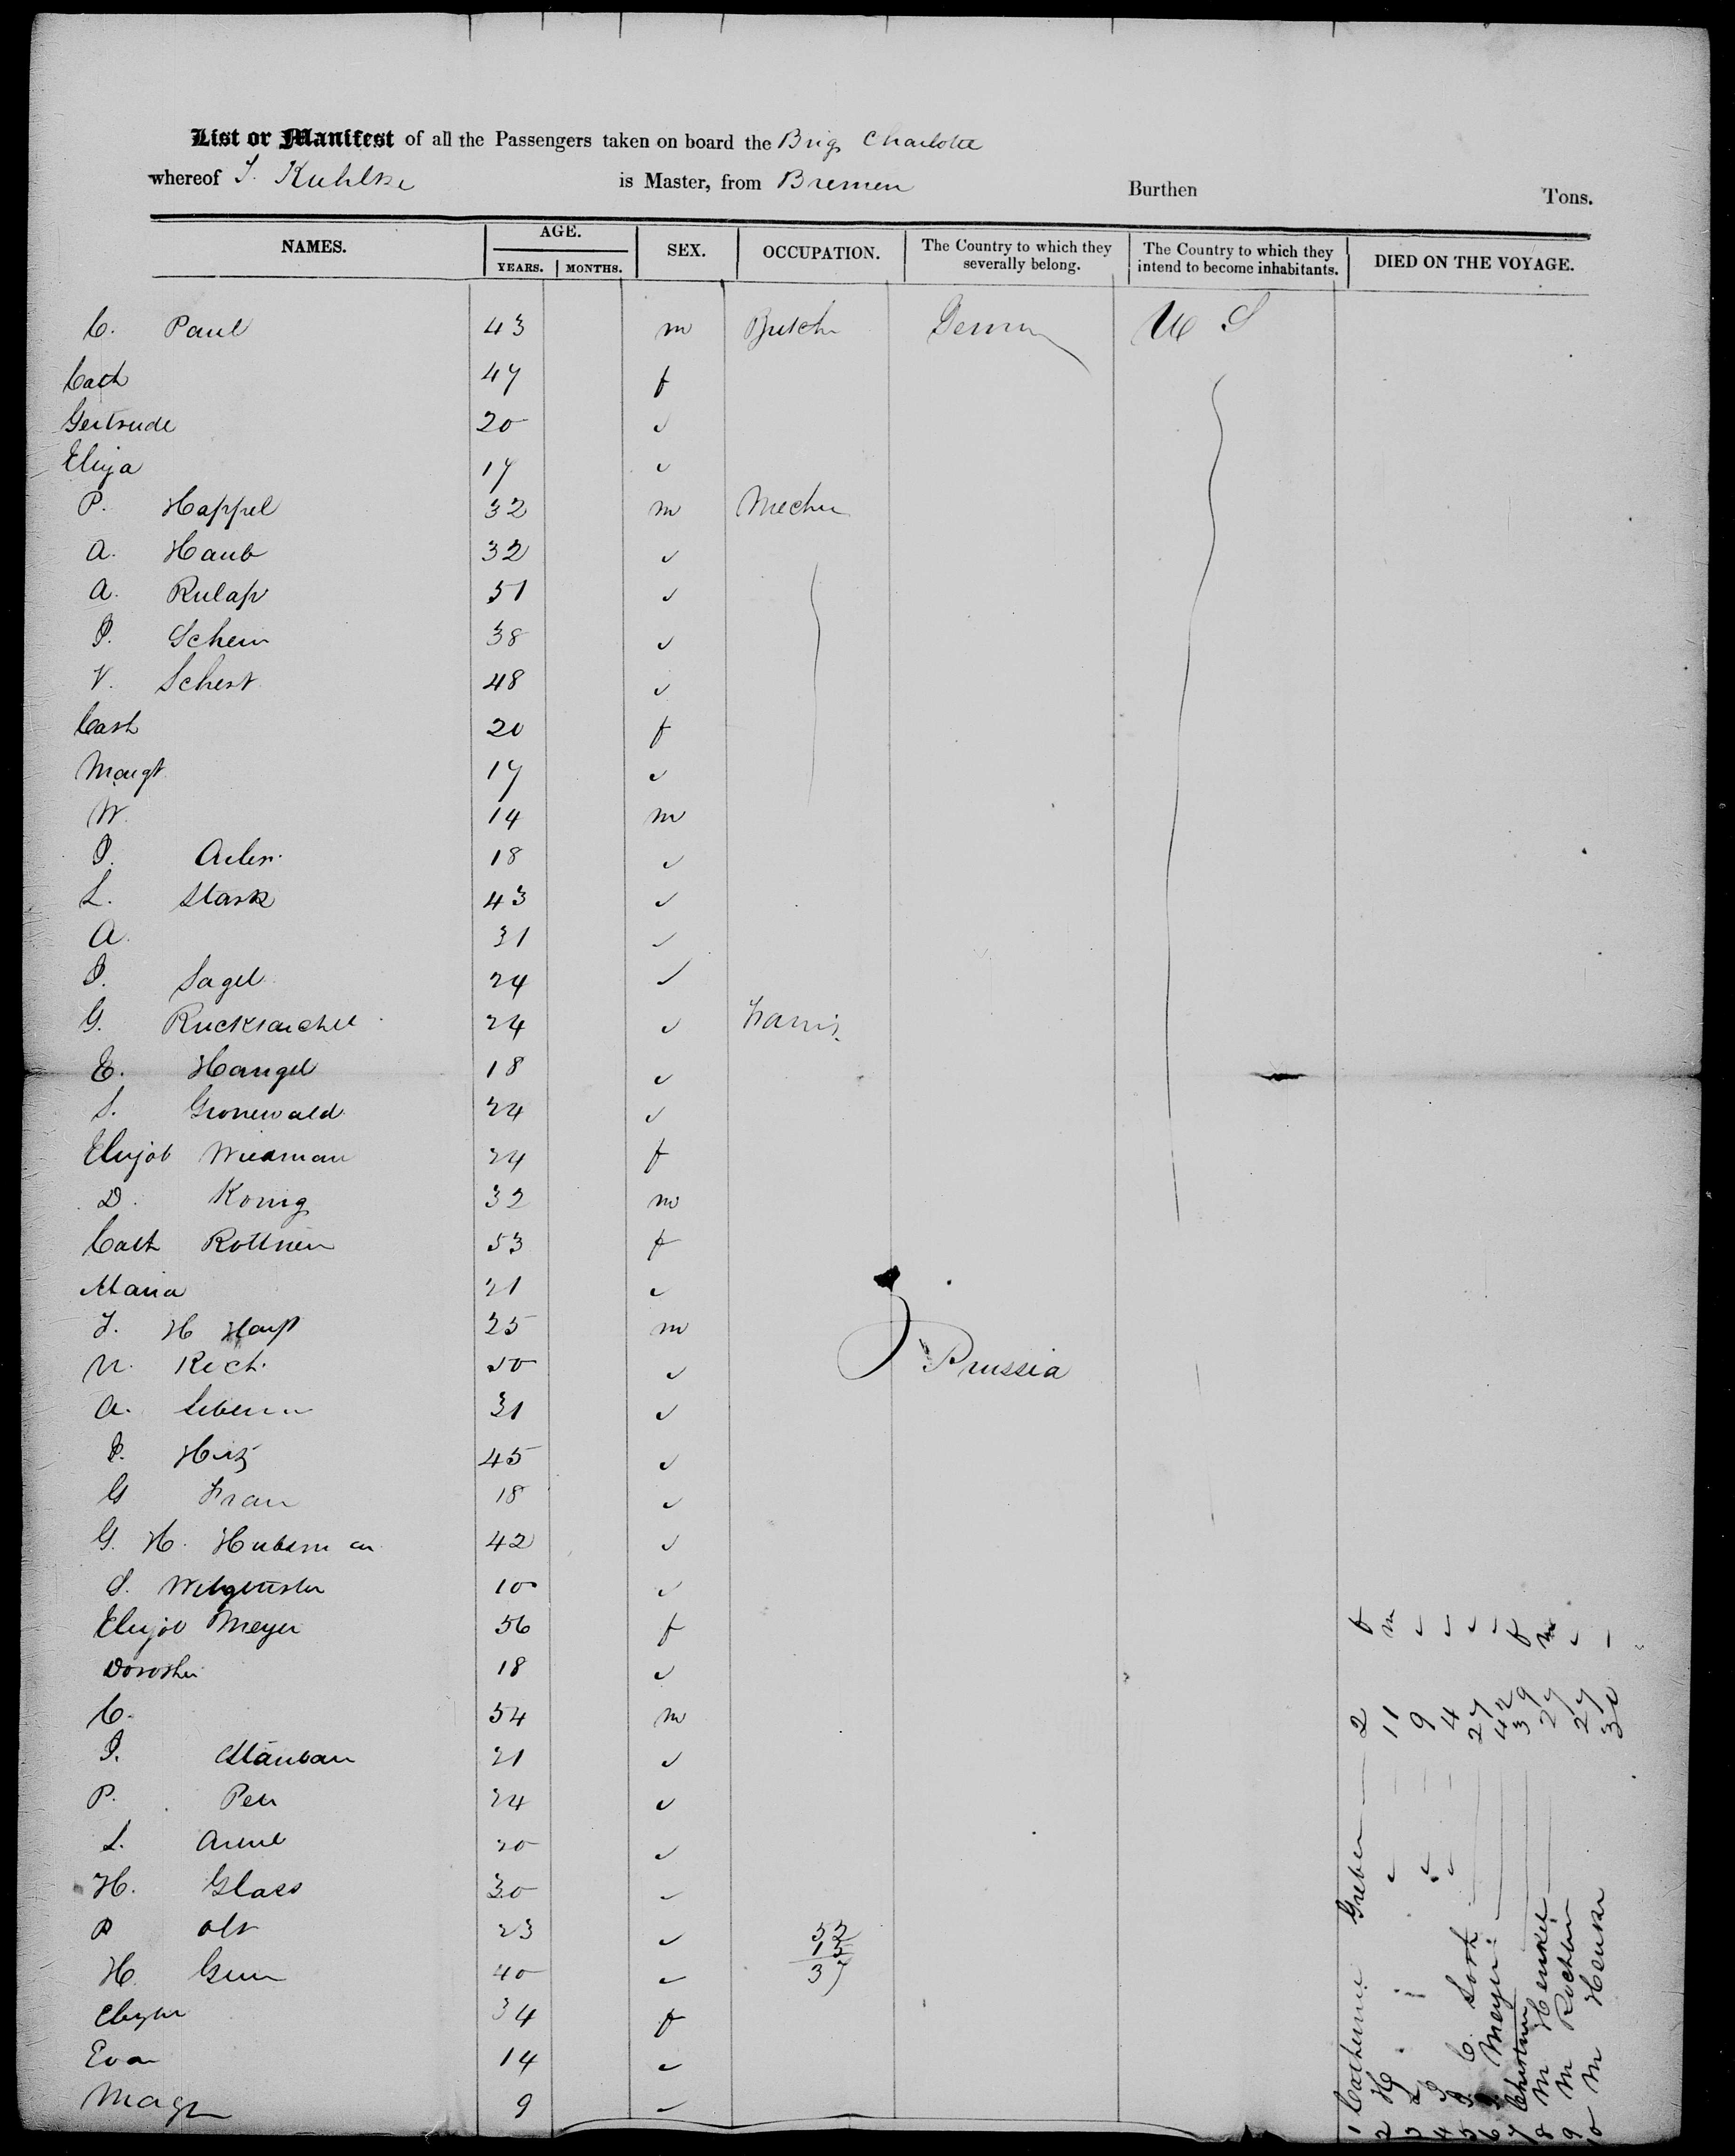 List or Manifest of all the Passengers taken on board the Brig Charlotte
whereof J. Kuhlke is Master, from Bremen Burthen Tons.
NAMES. AGE. YEARS. MONTHS. SEX. OCCUPATION. The Country to which they severally belong. The Country to which they intend to become inhabitants. DIED ON THE VOYAGE.
C. Paul 43 m Butch Germ U S
Cath 47 f
Gertrude 20 "
Eliza 17 "
P. Happel 32 m Mechn
A. Haub 32 "
A. Rulass 51 "
J. Schein 38 "
V. Schest 48 "
Cath 20 f
Margt 17 "
W. 14 m
J. 18 "
L. Stark 43 "
A. 31 "
J. Sagel 24 "
G. Ruckraichel 24 "
E. Hangel 18 "
S. Gronewald 24 "
Elizab Wiedman 24 f
D. Konig 32 m
Cath Rottner 53 f
Maria 21 "
J. H 25 m
N. Rech 50 " Prussia
A. 31 "
J. Hirz 45 "
G Fran 18 "
G. H. Hubsman 42 "
S. 10 "
Elizab Meyer 56 f
Dorothe 18 "
C. 54 m
J. 21 "
P. Peter 24 "
L. 20 "
H. Glass 30 "
P Olt 23 " 52
15
37
H. 40 "
34 f
Eva 14 "
Magr 9 "
1 Catherine Greber 2 f
2 H " 11 m
3 L " 9 "
4 J " 4 "
5 J. C. 27 "
6 J. Meyer 42 "
7 Christine 39 f
8 M Henkel 27 m
9 M 27 "
10 M Henke 30 "